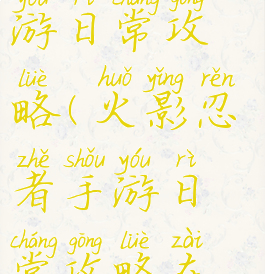 yóu rì cháng gōng
游日常攻
lüè huǒ yǐng rěn
略(火影忍
zhě shǒu yóu rì
者手游日
cháng gōng lüè zài
常攻略